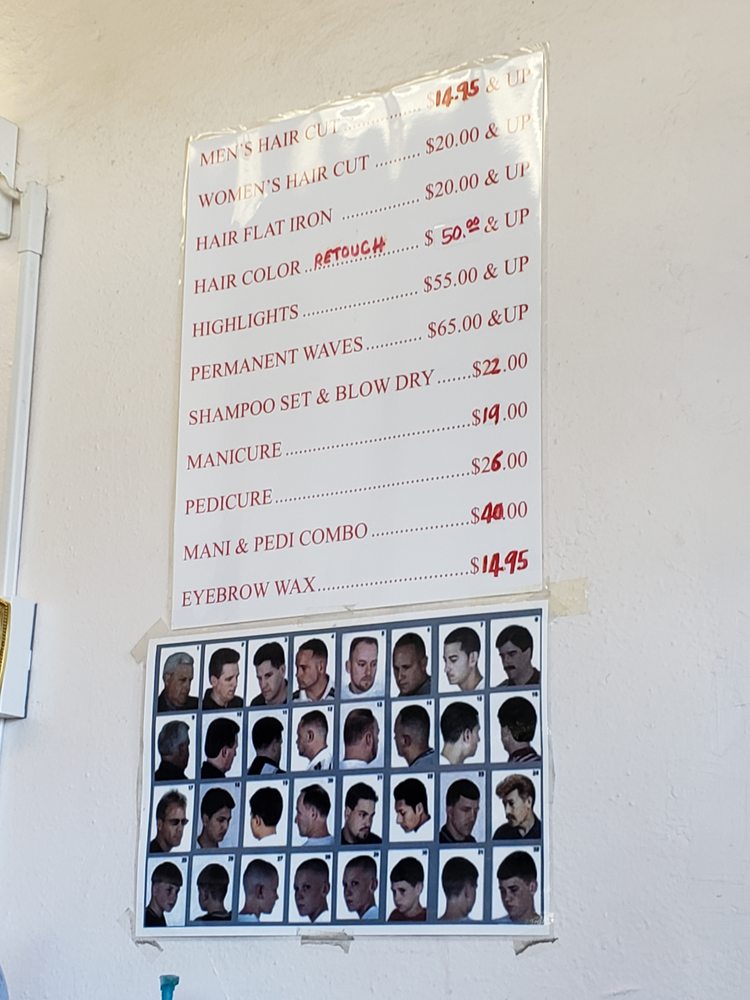 MEN'S HAIR CUT .................. $14.95 & UP
WOMEN'S HAIR CUT .......... $20.00 & UP
HAIR FLAT IRON ................. $20.00 & UP
HAIR COLOR RETOUCH ......................... $ 50.00 & UP
HIGHLIGHTS ......................... $55.00 & UP
PERMANENT WAVES ............ $65.00 &UP
SHAMPOO SET & BLOW DRY .......$22.00
MANICURE ........................................$19.00
PEDICURE ..........................................$26.00
MANI & PEDI COMBO .....................$40.00
EYEBROW WAX ................................$14.95